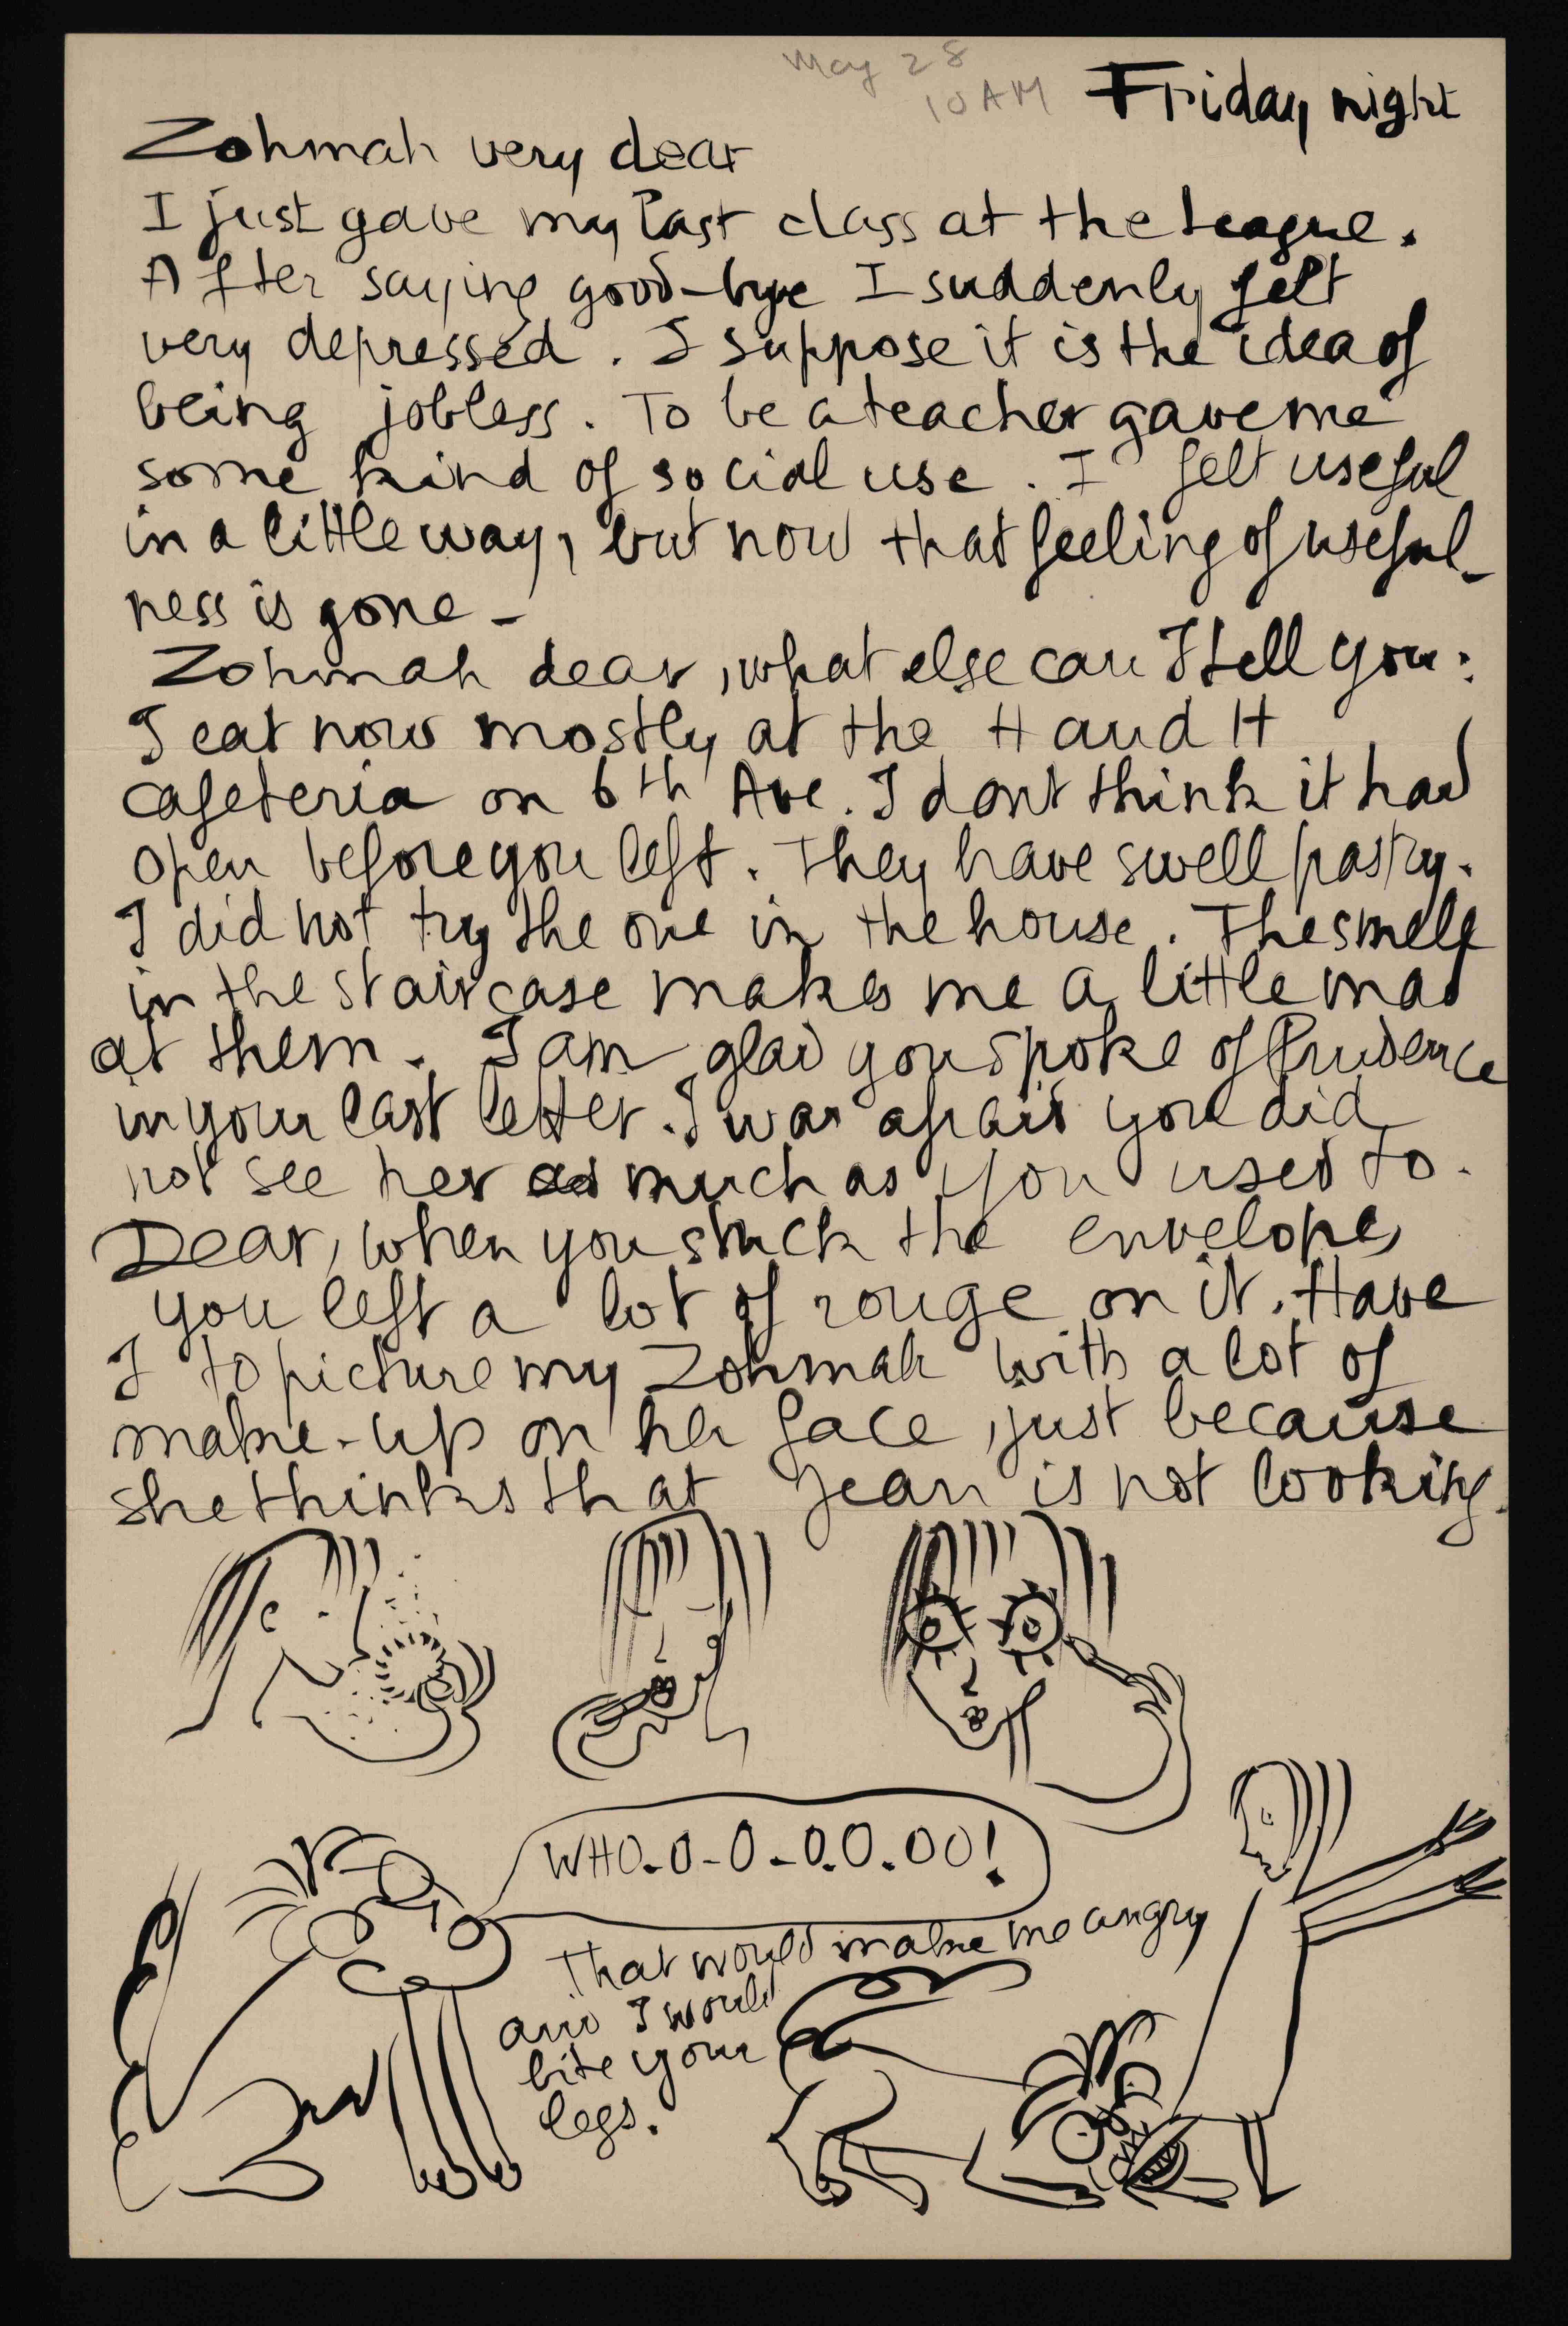 May 28
10 AM
Friday night
Zohmah very dear
I just gave my last class at the League.
After saying good-bye I suddenly felt
very depressed. I suppose it is the idea of
being jobless. To be a teacher gave me
some kind of social use. I felt useful
in a little way, but now that feeling of useful-
ness is gone -
Zohmah dear, what else can I tell you:
I eat now mostly at the H and H
cafeteria on 6th Ave. I dont think it had
open before you left. They have swell pastry.
I did not try the one in the house. The smell
in the staircase makes me a little mad
at them. I am glad you spoke of Prudence
in your last letter. I was afraid you did
not see her as much as you used to.
Dear, when you stuck the envelope,
you left a lot of rouge on it. Have
I to picture my Zohmah with a lot of
make-up on her face, just because
she thinks that Jean is not looking.
WHO-O-O-O.O.OO!
That would make me angry
and I would
bite your
legs.